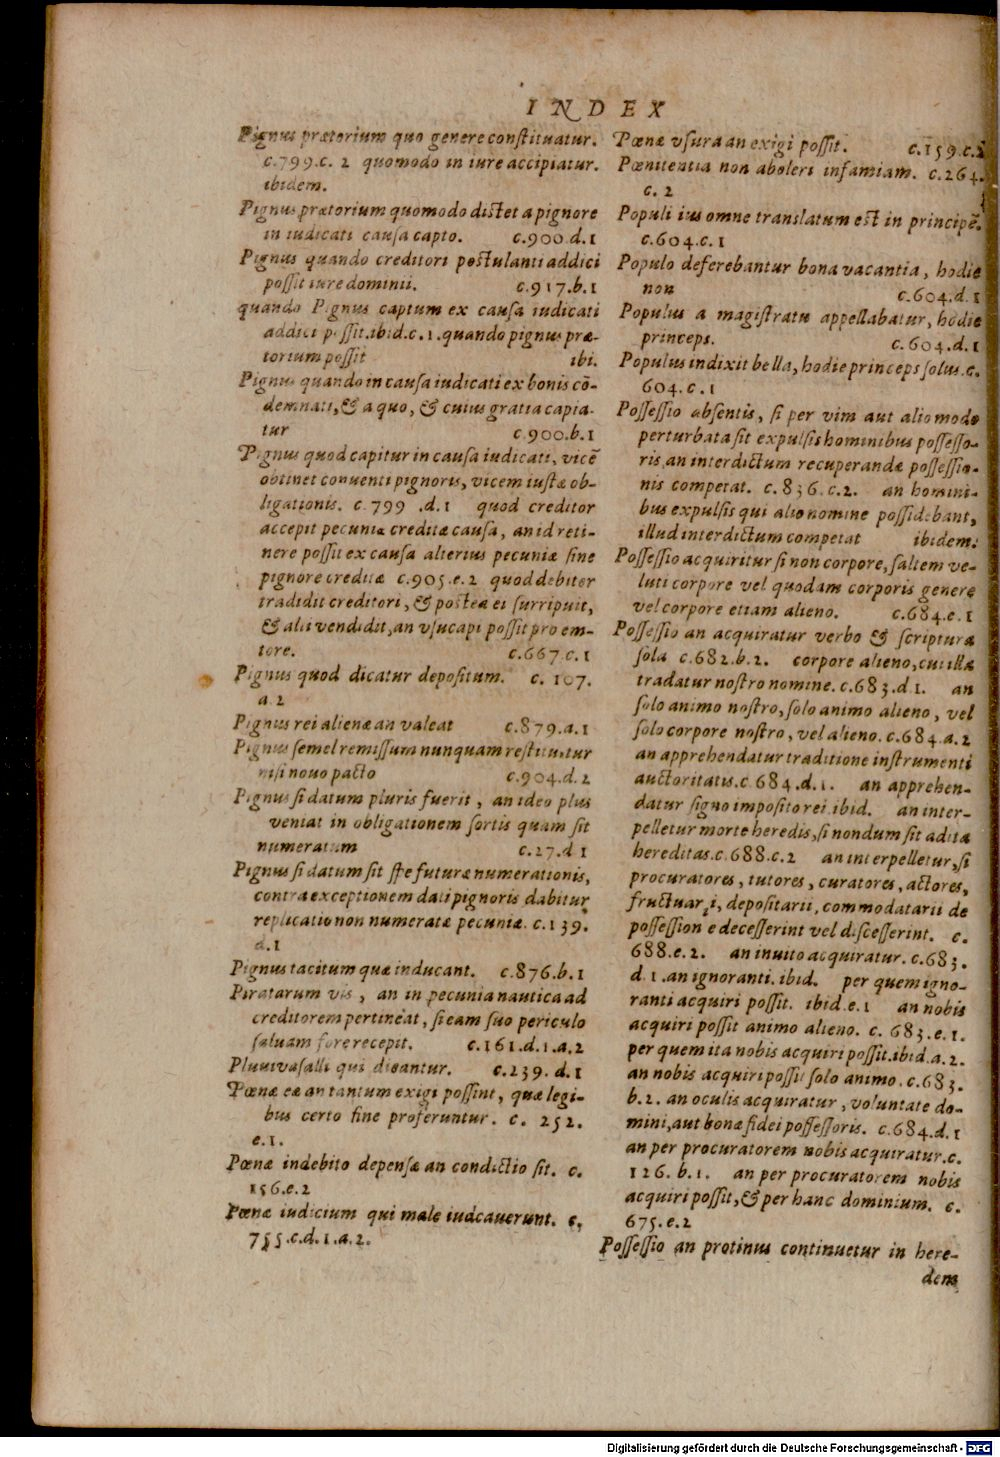 INDEX
Pignus prætorium quo genere constituatur.
c.799.c. 2 quomodo in iure accipiatur.
ibidem.
Pignus prætorium quomodo distet a pignore
in iudicati causa capto. c.900.d.1
Pignus quando creditori postulanti addici
possit iure dominii. c.917.b.1
quando Pignus captum ex causa iudicati
addici possit.ibid.c.1.quando pignus præ-
torium possit ibi.
Pignus quando in causa iudicati ex bonis cō-
demnati,& a quo, & cuius gratia capia-
tur c.900.b.1
Pignus quod capitur in causa iudicati, vicē
obtinet conuenti pignoris, vicem iustæ ob-
ligationis. c.799 .d.1 quod creditor
accepit pecuniæ creditæ causa, an id reti-
nere possit ex causa alterius pecuniæ sine
pignore creditæ c.905.e.2 quod debitor
tradidit creditori, & postea ei surripuit,
& alii vendidit,an vsucapi possit pro em-
tore. c.667.c.1
Pignus quod dicatur depositum. c. 107.
a.2
Pignus rei alienæ an valeat c.879.a.1
Pignus semel remissum nunquam restituitur
nisi nouo pacto c.904.d.2
Pignus si datum pluris fuerit, an ideo plus
veniat in obligationem sortis quam sit
numeratum c.27.d 1
Pignus si datum sit spe futuræ numerationis,
contra exceptionem dati pignoris dabitur
replicatio non numeratæ pecuniæ. c.139.
d.1
Pignus tacitum quæ inducant. c.876.b.1
Piratarum vis, an in pecunia nautica ad
creditorem pertineat, si eam suo periculo
saluam fore recepit. c.161.d.1.a.2
Pluuivasalli qui dicantur. c.239. d.1
Pœnæ eæ an tantum exigi possint, quæ legi-
bus certo fine proferuntur. c. 252.
e.1.
Pœnæ indebito depensæ an condictio sit. c.
156.e.2
Pœnæ iudicium qui male iudcauerunt. c.
755.c.d.1.a.2.
Pœnæ vsura an exigi possit. c.159.c.2
Pœnitentia non aboleri infamiam. c.264.
c. 2
Populi ius omne translatum est in principē.
c.604.c.1
Populo deferebantur bona vacantia, hodie
non c.604.d.1
Populus a magistratu appellabatur, hodie
princeps. c.604.d.1
Populus indixit bella, hodie princeps solus.c.
604.c.1
Possessio absentis, si per vim aut alio modo
perturbata sit expulsis hominibus possesso-
ris,an interdictum recuperandæ possessio-
nis competat. c.836.c.2. an homini-
bus expulsis qui alio nomine possidebant,
illud interdictum competat ibidem.
Possessio acquiritur si non corpore, saltem ve-
luti corpore vel quodam corporis genere
vel corpore etiam alieno. c.684.e.1
Possessio an acquiratur verbo & scriptura
sola c.682.b.2. corpore alieno,cui illa
tradatur nostro nomine. c.683.d.1. an
solo animo nostro, solo animo alieno, vel
solo corpore nostro, vel alieno. c.684.a.2
an apprehendatur traditione instrumenti
auctoritatis.c 684.d.1. an apprehen-
datur signo imposito rei.ibid. an inter-
pelletur morte heredis, si nondum sit adita
hereditas.c.688.c.2 an interpelletur, si
procuratores, tutores, curatores, actores,
fructuarii, depositarii, commodatarii de
possessione decesserint vel discesserint. c.
688.e.2. an inuito acquiratur. c.683.
d.1.an ignoranti.ibid. per quem igno-
ranti acquiri possit. ibid.e.1 an nobis
acquiri possit animo alieno. c. 683.e.1.
per quem ita nobis acquiri possit.ibid.a.2.
an nobis acquiri possit solo animo.c.683.
b.2. an oculis acquiratur, voluntate do-
mini,aut bonæ fidei possessoris. c.684.d.1
an per procuratorem nobis acquiratur.c.
126.b.1. an per procuratorem nobis
acquiri possit, & per hanc dominium. c.
675.e.2
Possessio an protinus continuetur in here-
dem
Digitalisierung gefördert durch die Deutsche Forschungsgemeinschaft - DFG